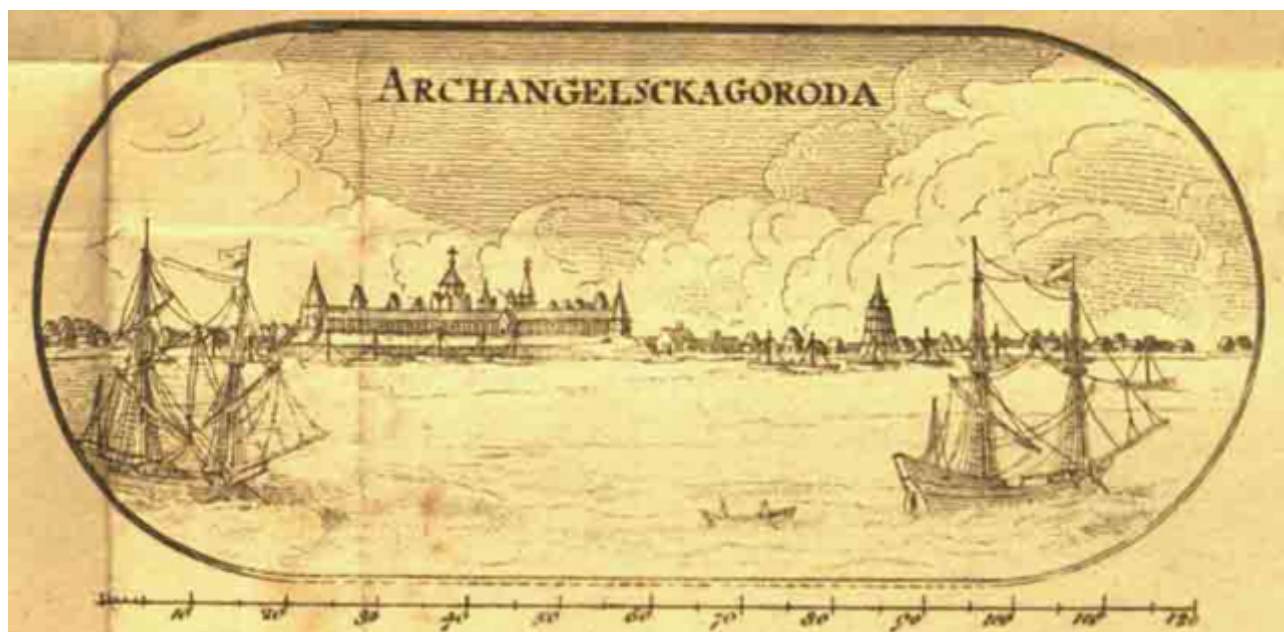 ARCHANGELSCKAGORODA
10 20 30 40 50 60 70 80 90 100 110 120